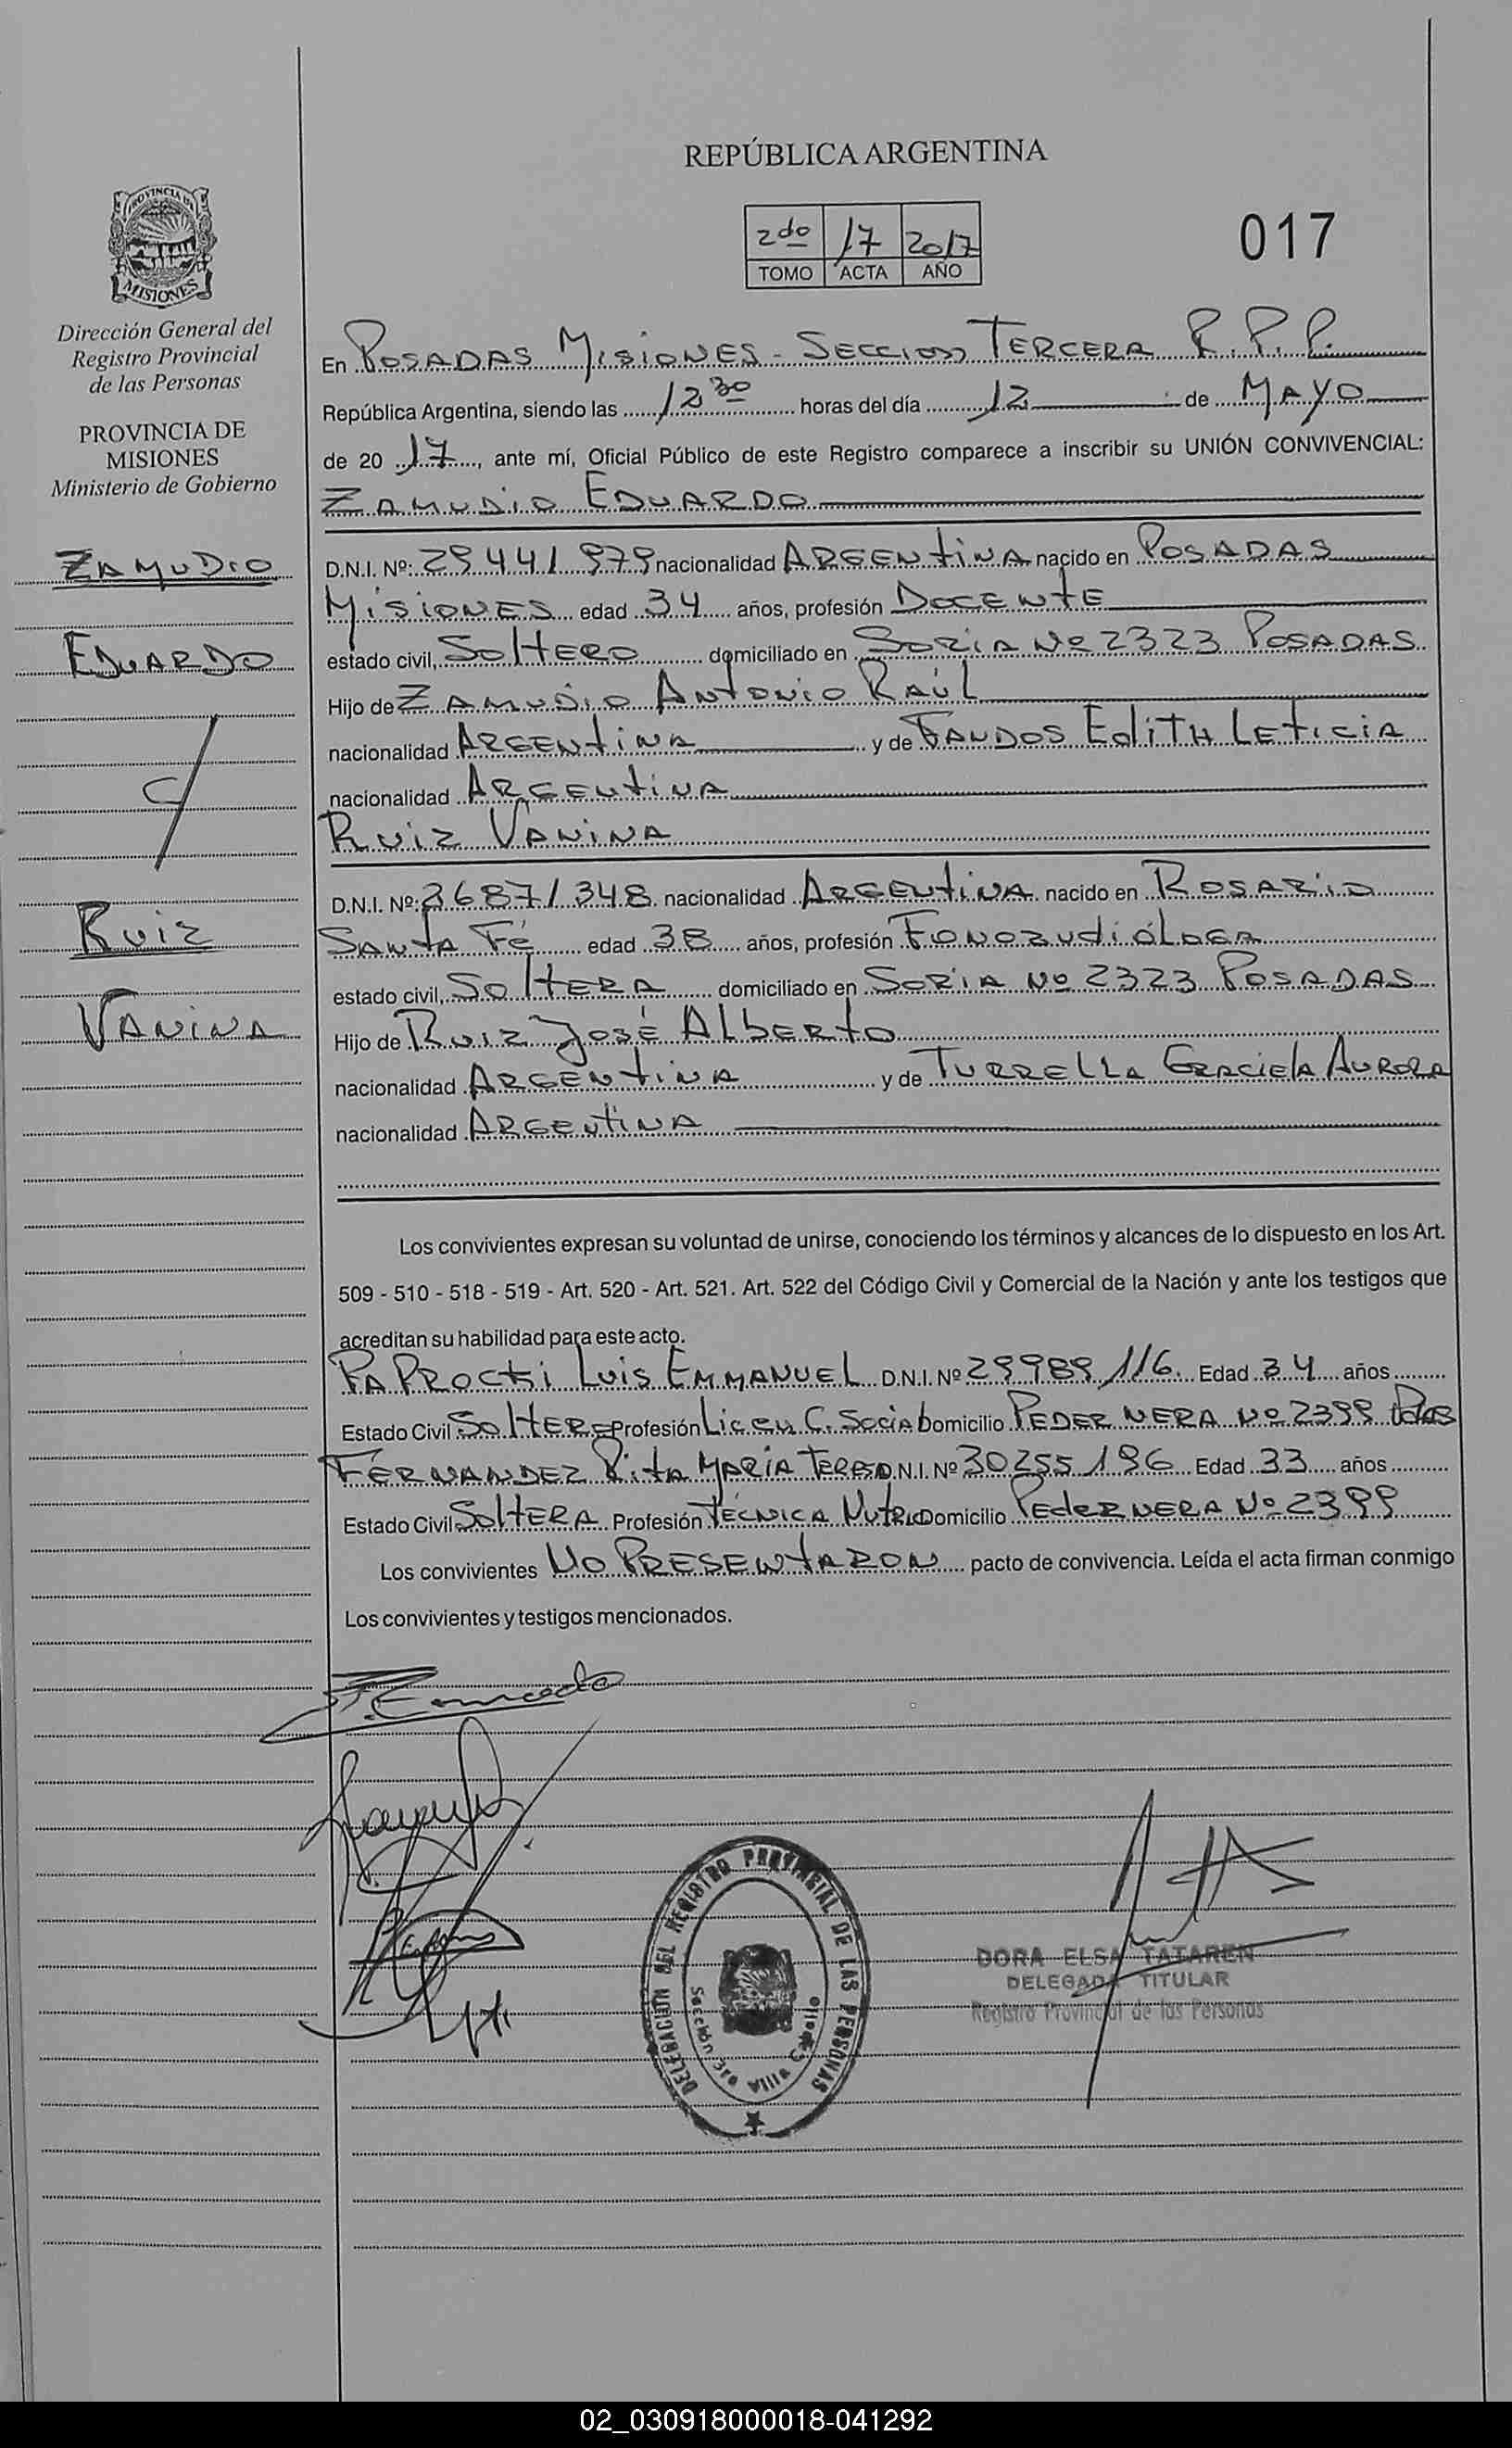 REPÚBLICA ARGENTINA
2do 17 2017
TOMO ACTA AÑO
017
PROVINCIA DE
MISIONES
Dirección General del
Registro Provincial
de las Personas
PROVINCIA DE
MISIONES
Ministerio de Gobierno
ZAMUDIO
EDUARDO
c/
RUIZ
VANINA
En POSADAS MISIONES - SECCION TERCERA R.P.P.
República Argentina, siendo las 12 30 horas del día 12 de MAYO
de 20 17, ante mí, Oficial Público de este Registro comparece a inscribir su UNIÓN CONVIVENCIAL:
ZAMUDIO EDUARDO
D.N.I. Nº: 29 441 979 nacionalidad ARGENTINA nacido en POSADAS
MISIONES edad 34 años, profesión DOCENTE
estado civil, SOLTERO domiciliado en SORIA Nº 2323 POSADAS
Hijo de ZAMUDIO ANTONIO RAÚL
nacionalidad ARGENTINA y de FANDOS EDITH LETICIA
nacionalidad ARGENTINA
RUIZ VANINA
D.N.I. Nº: 26871348 nacionalidad ARGENTINA nacido en ROSARIO
SANTA FÉ edad 38 años, profesión FONOAUDIÓLOGA
estado civil, SOLTERA domiciliado en SORIA Nº 2323 POSADAS
Hijo de RUIZ JOSÉ ALBERTO
nacionalidad ARGENTINA y de TURRELLA GRACIELA AURORA
nacionalidad ARGENTINA
Los convivientes expresan su voluntad de unirse, conociendo los términos y alcances de lo dispuesto en los Art.
509 - 510 - 518 - 519 - Art. 520 - Art. 521. Art. 522 del Código Civil y Comercial de la Nación y ante los testigos que
acreditan su habilidad para este acto.
PAPROCKI LUIS EMMANUEL D.N.I. Nº 29989 116. Edad 34 años
Estado Civil SOLTERO Profesión Licen C. Social Domicilio PEDERNERA Nº 2399 Pdas
FERNANDEZ RITA MARÍA TERESA D.N.I. Nº 30255 196 Edad 33 años
Estado Civil SOLTERA Profesión TÉCNICA Nutric Domicilio PEDERNERA Nº 2399
Los convivientes NO PRESENTARON pacto de convivencia. Leída el acta firman conmigo
Los convivientes y testigos mencionados.
DELEGACIÓN DEL REGISTRO PROVINCIAL DE LAS PERSONAS
Sección 3ra Villa Cabello
DORA ELSA TATAREN
DELEGADA TITULAR
Registro Provincial de las Personas
02_030918000018-041292